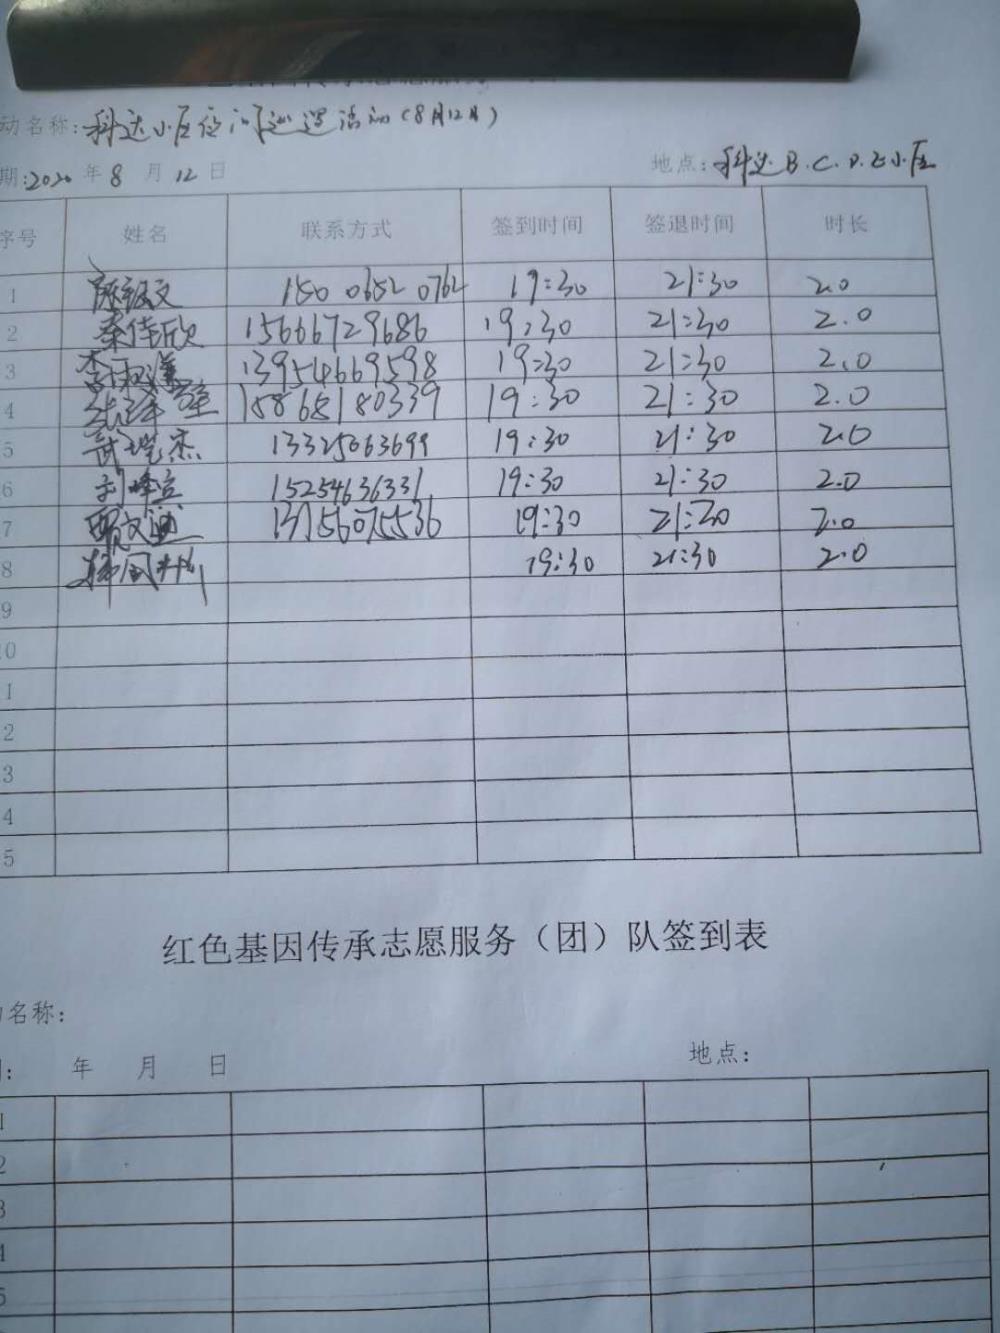 动名称:科达小区夜间巡逻活动(8月12日)
期:2020年8月12日 地点:科达B.C.D.E小区
序号 姓名 联系方式 签到时间 签退时间 时长
1 150 0652 0762 19:30 21:30 2.0
2 秦佳欣 15666729686 19:30 21:30 2.0
3 13954669598 19:30 21:30 2.0
4 18868180339 19:30 21:30 2.0
5 武瑞杰 13325063699 19:30 21:30 2.0
6 刘峰 15254636331 19:30 21:30 2.0
7 贾文 13756075536 19:30 21:30 2.0
8 19:30 21:30 2.0
9
0
1
2
3
4
5
红色基因传承志愿服务（团）队签到表
名称:
: 年 月 日 地点:
1
2
3
4
5